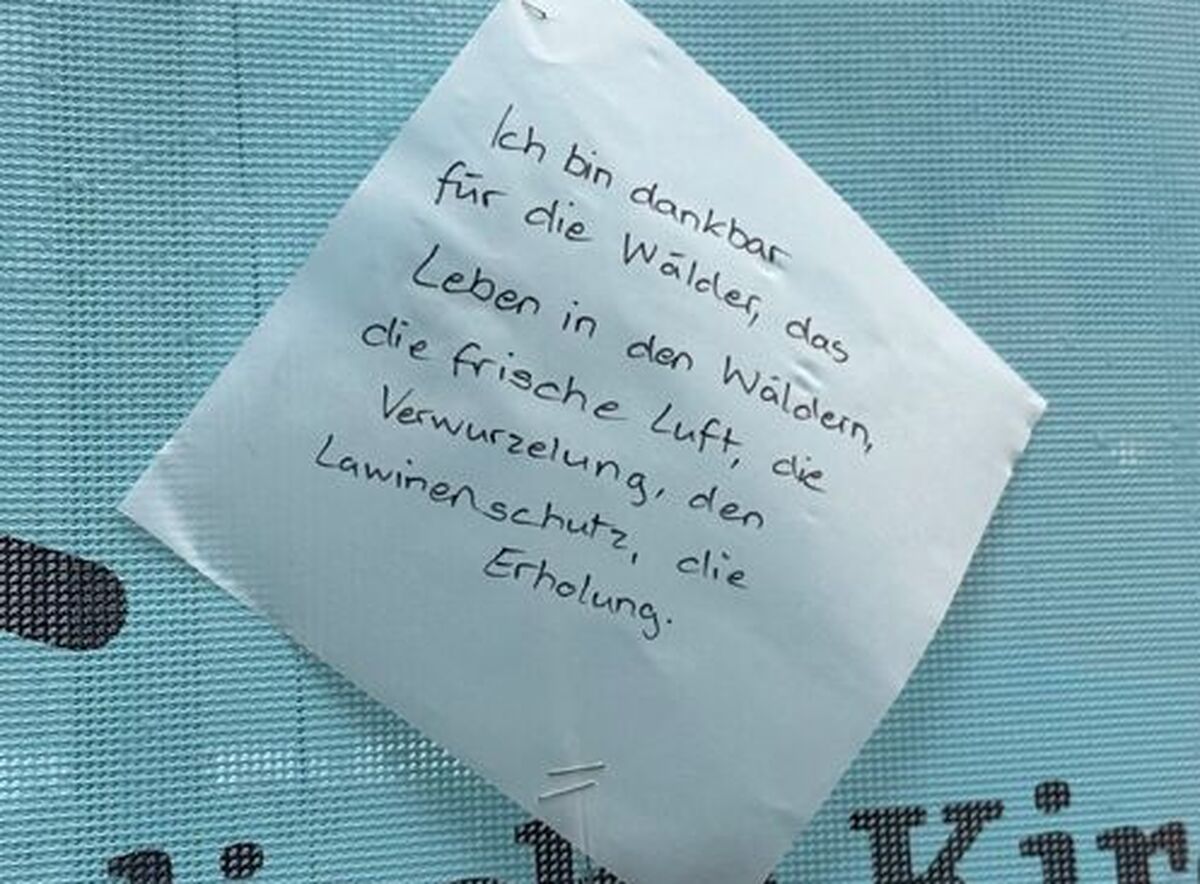 Ich bin dankbar
für die Wälder, das
Leben in den Wäldern,
die frische Luft, die
Verwurzelung, den
Lawinenschutz, die
Erholung.
Kir